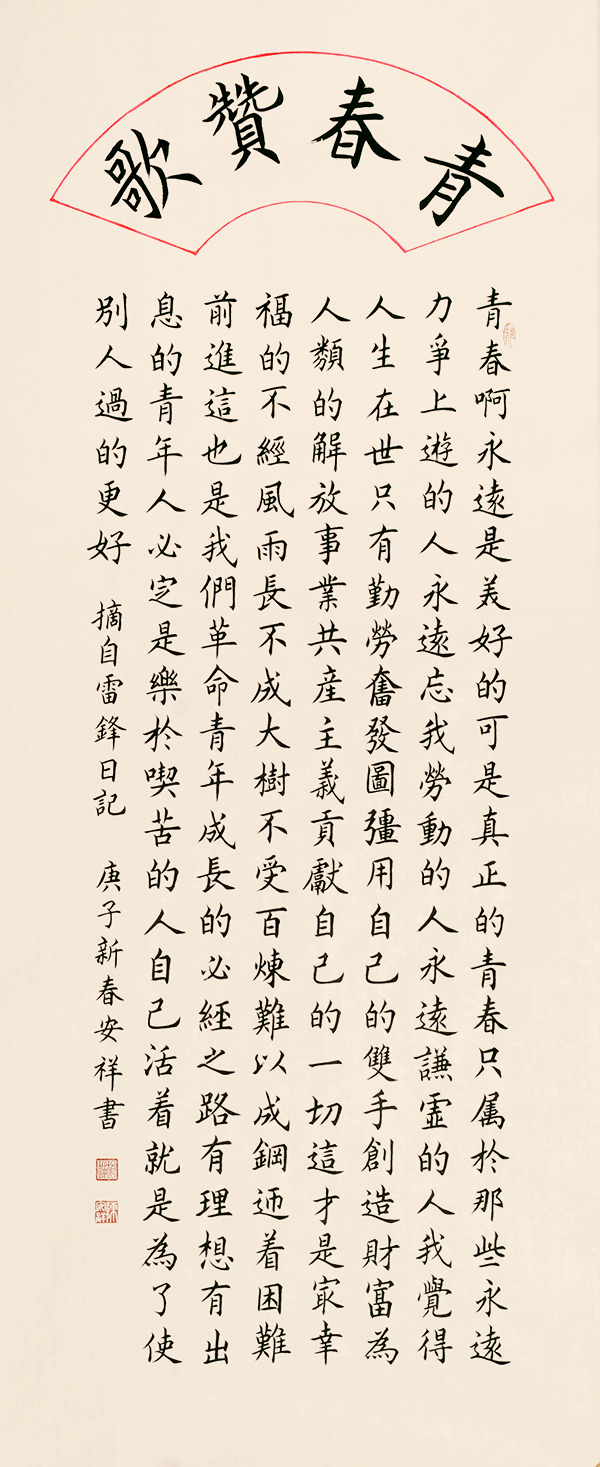 青春贊歌
青春啊永遠是美好的可是真正的青春只属於那些永遠
力爭上遊的人永遠忘我勞動的人永遠謙虛的人我覺得
人生在世只有勤勞奮發圖彊用自己的雙手創造財富為
人類的解放事業共産主義貢獻自己的一切這才是最幸
福的不經風雨長不成大樹不受百煉難以成鋼迎着困難
前進這也是我們革命青年成長的必經之路有理想有出
息的青年人必定是樂於喫苦的人自己活着就是為了使
別人過的更好 摘自雷鋒日記 庚子新春安祥書